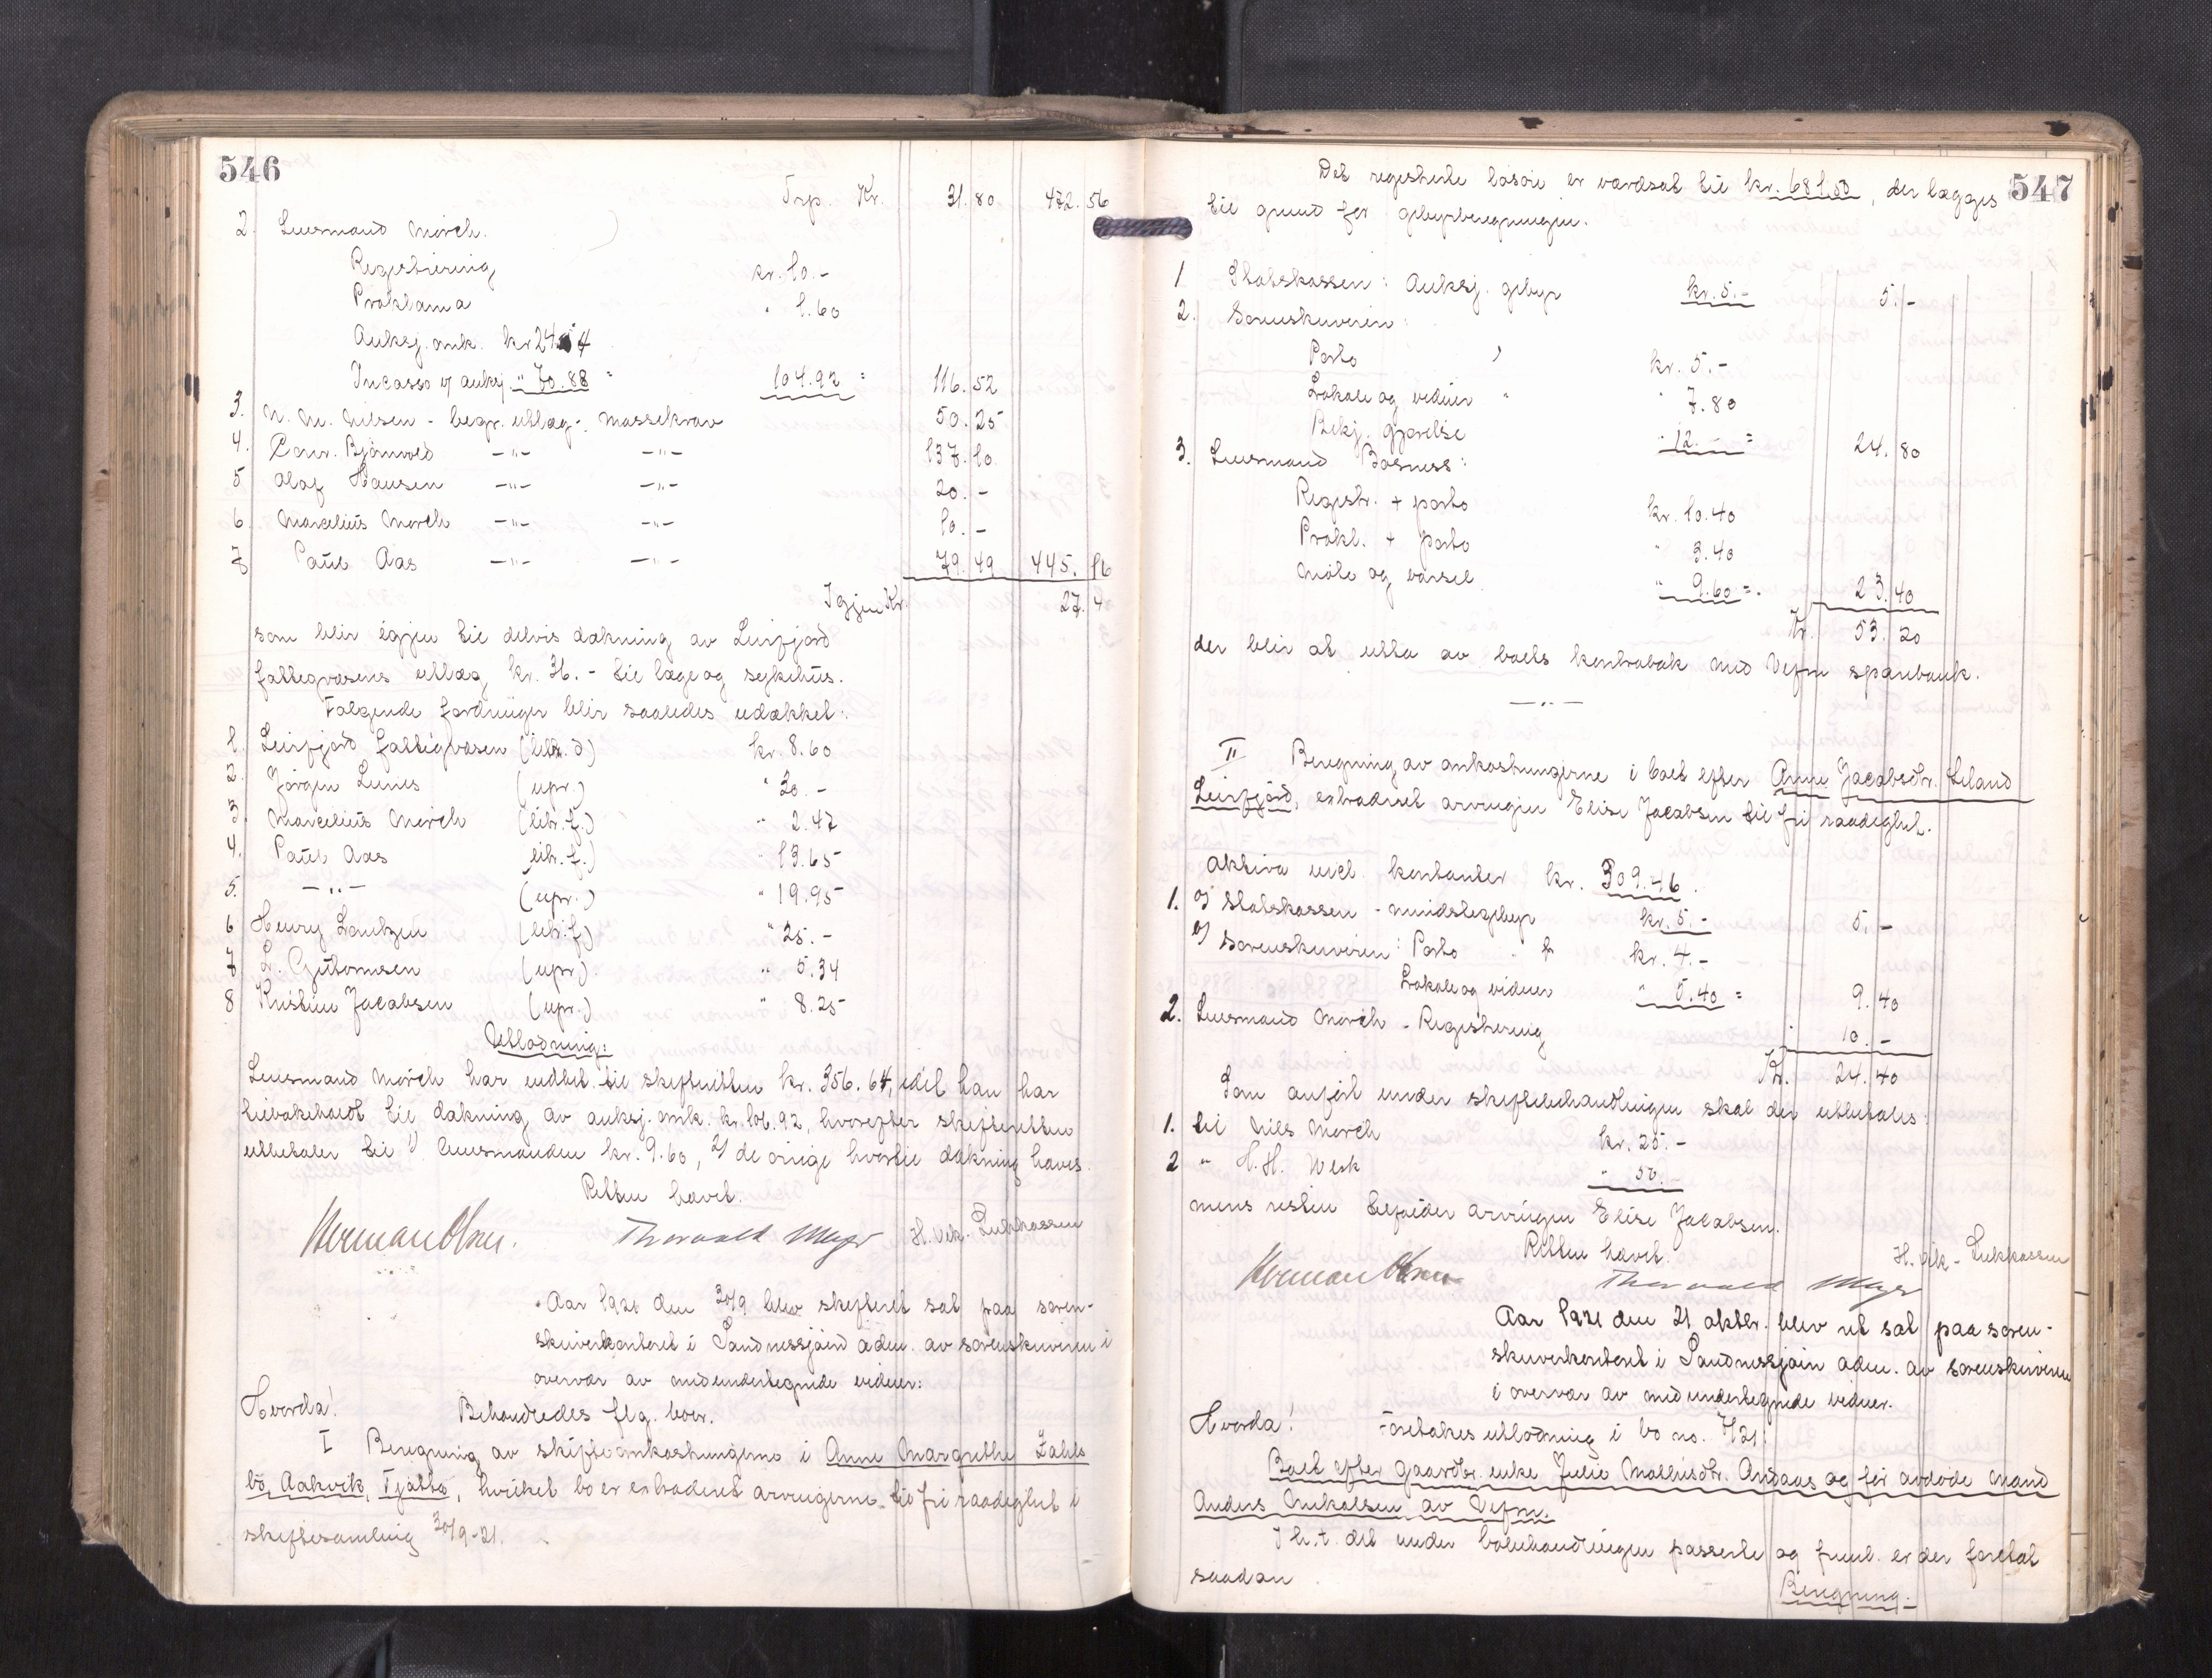 546
Trp. Kr. 31.80 472.56
2. Lensmand Mörch.
Registrering kr. 10.-
Proklama " 1.60
Auksj. omk. kr 24.04
Incasso af auksj. " 70.88 = 104.92 = 116.52
3. N. M. Nilsen - begr. utlæg-. massekrav 50.25
4. Bjørnvold -"- -"- 137.10
5 Olaf Hansen -"- -"- 20.-
6. Marcelius Mörch -"- -"- 10.-
7 Paul Aas -"- -"- 79.49 445.16
Igjen Kr. 27.4
som blir igjen til delvis dækning av Leirfjord
fattigvæsens utlæg kr. 36.- til læge og sykehus.
Følgende fordringer blir saaledes udækket:
1. Leirfjord fattigvæsen (litr. d) kr. 8.60
2. Jørgen Lines (upr.) " 20.-
3. Marcelius Mörch (litr. f.) " 2.47
4. Paul Aas (litr. f.) " 13.65
5. -"- (upr.) " 19.95
6 Henry Lantzen (litr. f) " 25.-
7 L. Guttormsen (upr.) " 5.34
8 Kristine Jacobsen (upr.) " 8.25
Utlodning:
Lensmand Mörch har indbet. til skifteretten kr. 356.64, idet han har
tilbakeholdt til dækning av auksj. omk. kr. 106.92, hvorefter skifteretten
utbetaler til 1) lensmanden kr. 9.60, 2) de øvrige hvortil dækning haves.
Retten hævet.
Herman Olsen. Thorvald Meyer H. Vik-Lukkassen
Aar 1921 den 30/9 blev skifteret sat paa soren-
skriverkontoret i Sandnessjøen adm. av sorenskriveren i
overvær av medundertegnede vidner:
Hvorda! Behandledes flg. boer.
I Beregning av skifteomkostningerne i Anne Margrethe Zahls
bo, Aakvik, Tjøtta, hvilket bo er extraderet arvingerne til fri raadighet i
skiftesamling 30/9-21.
547
Det registrerte løsøre er værdsat til kr. 681.50, der lægges
til grund for gebyrberegningen.
1 Statskassen: Auksj. gebyr kr. 5.- 5.-
2. Sorenskriveren:
Porto kr. 5.-
Lokale og vidner " " 7.80
Bekj. gjørelse " 12.- = 24.80
3. Lensmand Bosness:
Registr. + porto kr. 10.40
Prokl. + porto " 3.40
Møte og varsel " 9.60 =. 23.40
Kr. 53.20
der blir at utta av boets kontrabok med Vefsn sparebank.
-"-
II Beregning av omkostningerne i boet efter Anne Jacobsdtr. Leland
Leirfjord, extraderet arvingen Elise Jacobsen til fri raadighet.
Aktiva incl. kontanter kr. 309.46.
1. a) Statskassen - mindstegebyr kr. 5.- 5.-
b) Sorenskriveren: Porto kr. 4.-
Lokale og vidner " 5.40 = 9.40
2. Lensmand Mörch - Registrering 10.-
Kr. 24.40
Som anført under skiftebehandlingen skal der utbetales:
1. til Nils Mörch kr. 25.-
2 " H. H. Werk " 50.-
mens resten tilfalder arvingen Elise Jacobsen.
Retten hævet.
Herman Olsen Thorvald Meyer H. Vik-Lukkassen
Aar 1921 den 21 oktbr. blev ret sat paa soren-
skriverkontoret i Sandnessjøen adm. av sorenskriveren
i overvær av medundertegnede vidner.
Hvorda! Foretokes utlodning i bo no. 7/21:
Boet efter gaardbr. enke Julie Mathisdtr. Andaas og før avdøde mand
Anders Mikalsen av Vefsn.
I h.t. det under bobehandlingen passerte og freml. er der foretat
saadan
Beregning.